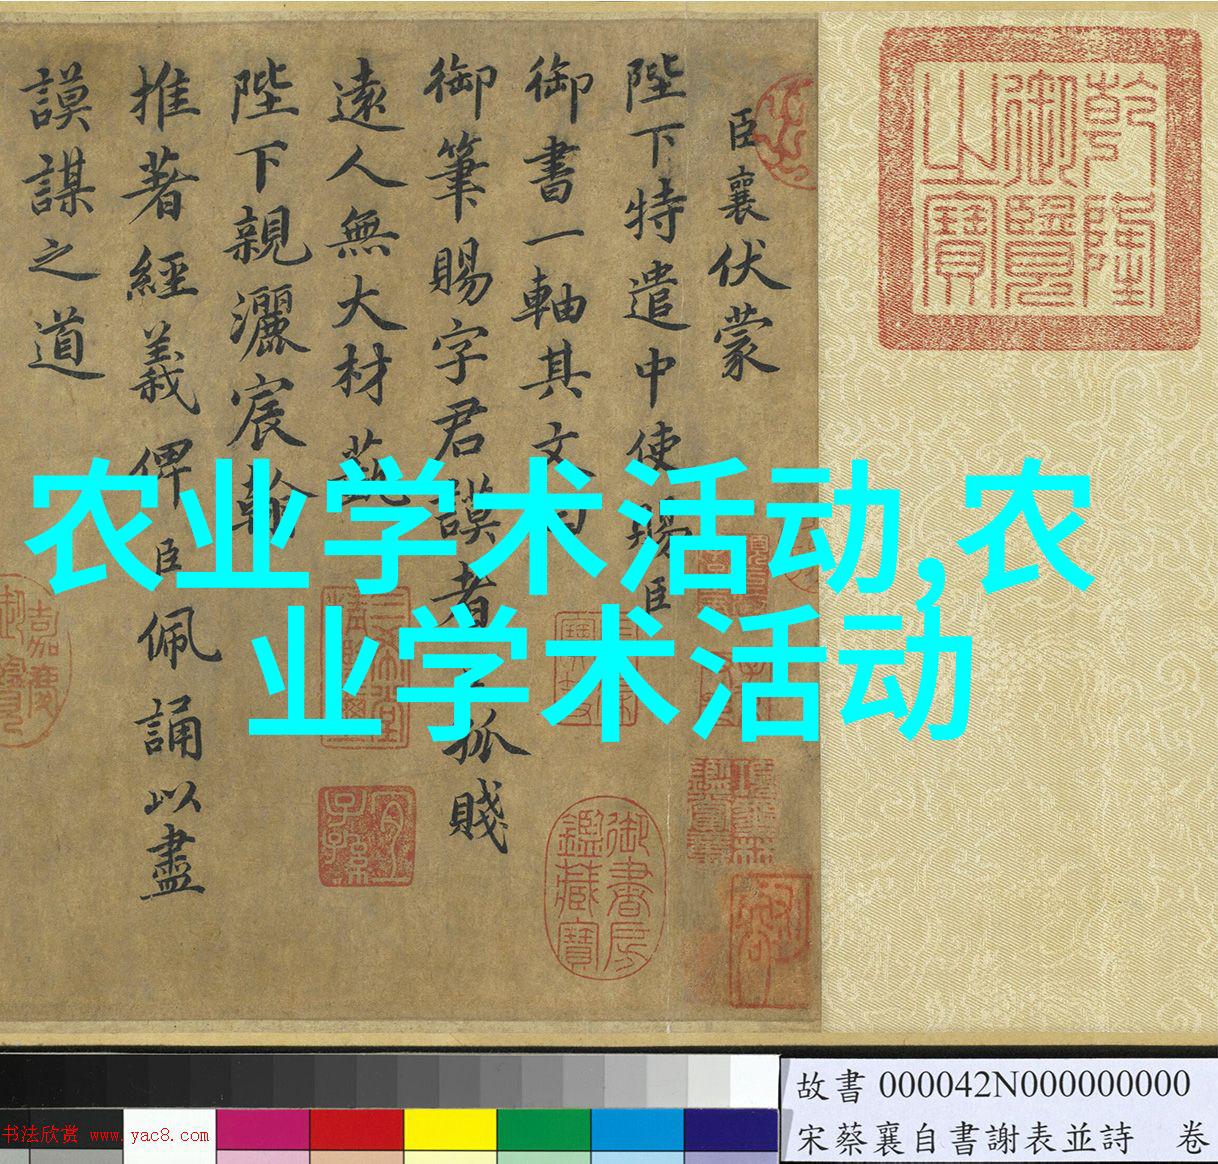 臣襄伏蒙
陛下特遣中使賜臣
御書一軸其文曰
御筆賜字君謨者臣孤賤
遠人無大材藝
陛下親灑宸翰
推著經義俾臣佩誦以盡
謨謀之道
乾隆
御覽
之寶
农业学术活动,农
业学术活动
御書房
鑑藏寶
宜
子孫
嘉慶
御覽
故書 000042N000000000
宋蔡襄自書謝表並詩 卷
书法欣赏 www.yac8.com